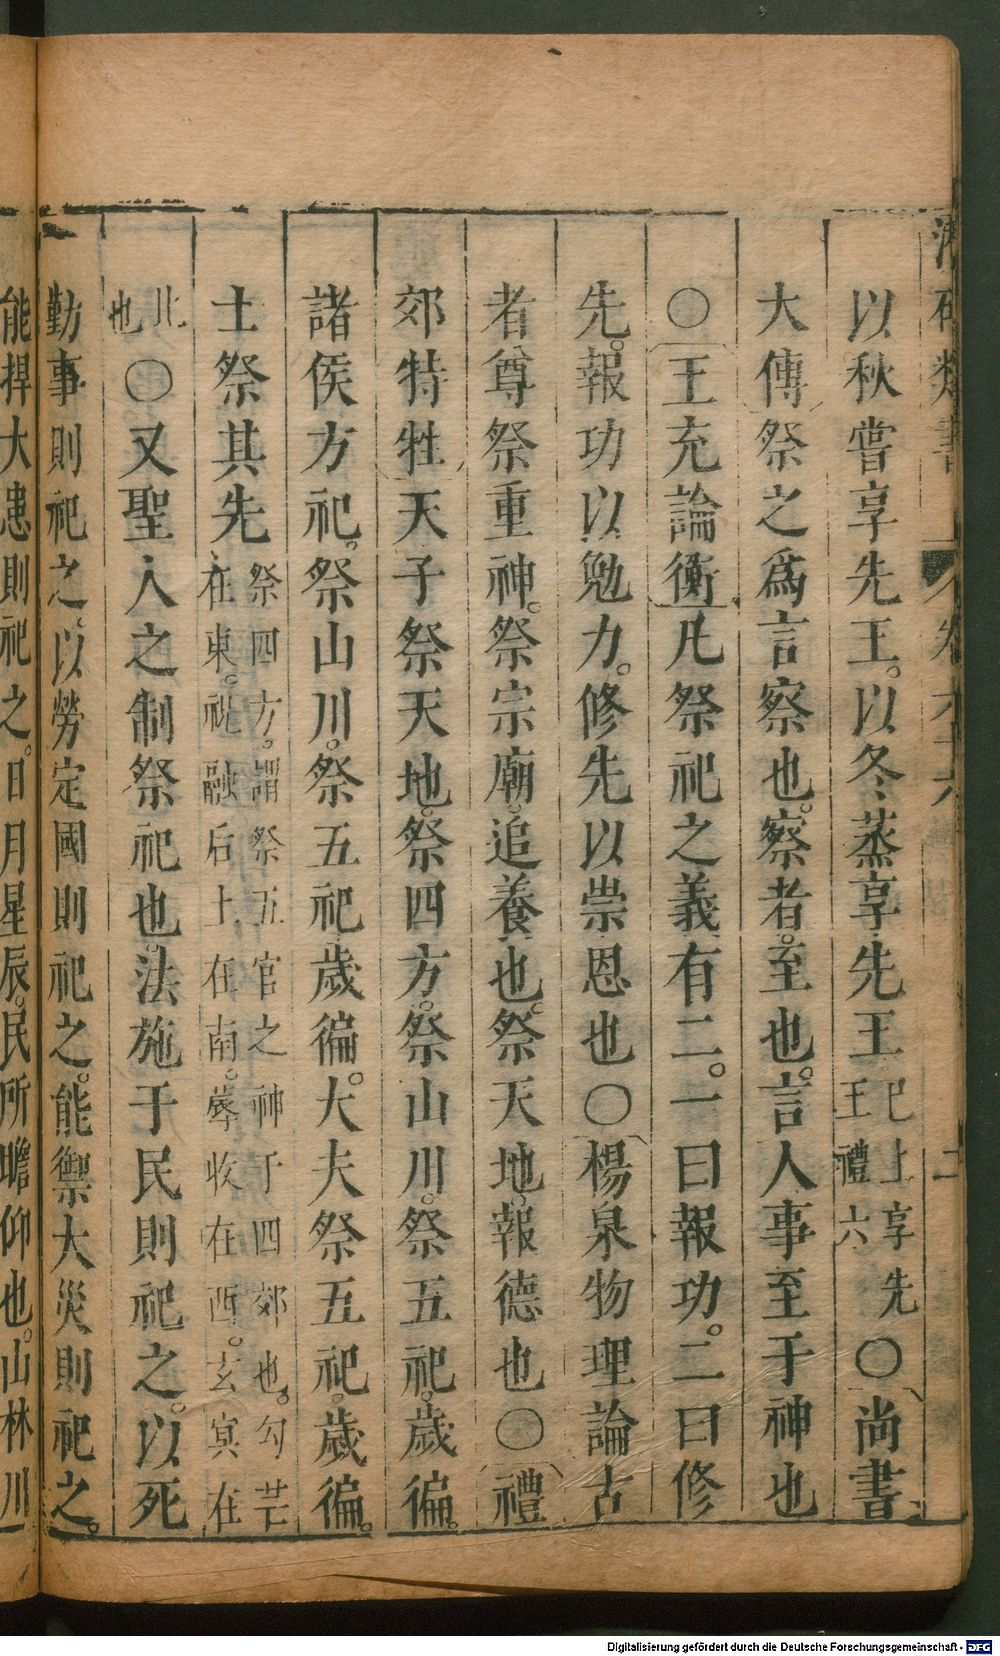 類書 卷 二
以秋嘗享先王。以冬蒸享先王已上享先王禮六○尚書
大傳祭之爲言察也。察者。至也。言人事至于神也
○王充論衡凡祭祀之義有二。一曰報功。二曰修
先。報功以勉力。修先以崇恩也○楊泉物理論古
者尊祭重神。祭宗廟。追養也。祭天地。報德也○禮
郊特牲天子祭天地。祭四方。祭山川。祭五祀。歲徧。
諸侯方祀。祭山川。祭五祀歲徧。大夫祭五祀。歲徧。
士祭其先祭四方。謂祭五官之神于四郊也。勾芒在東。祝融后土在南。蓐收在西。玄冥在
北也○又聖人之制祭祀也。法施于民則祀之。以死
勤事則祀之。以勞定國則祀之。能禦大災則祀之。
能捍大患則祀之。日月星辰。民所瞻仰也。山林川
Digitalisierung gefördert durch die Deutsche Forschungsgemeinschaft - DFG